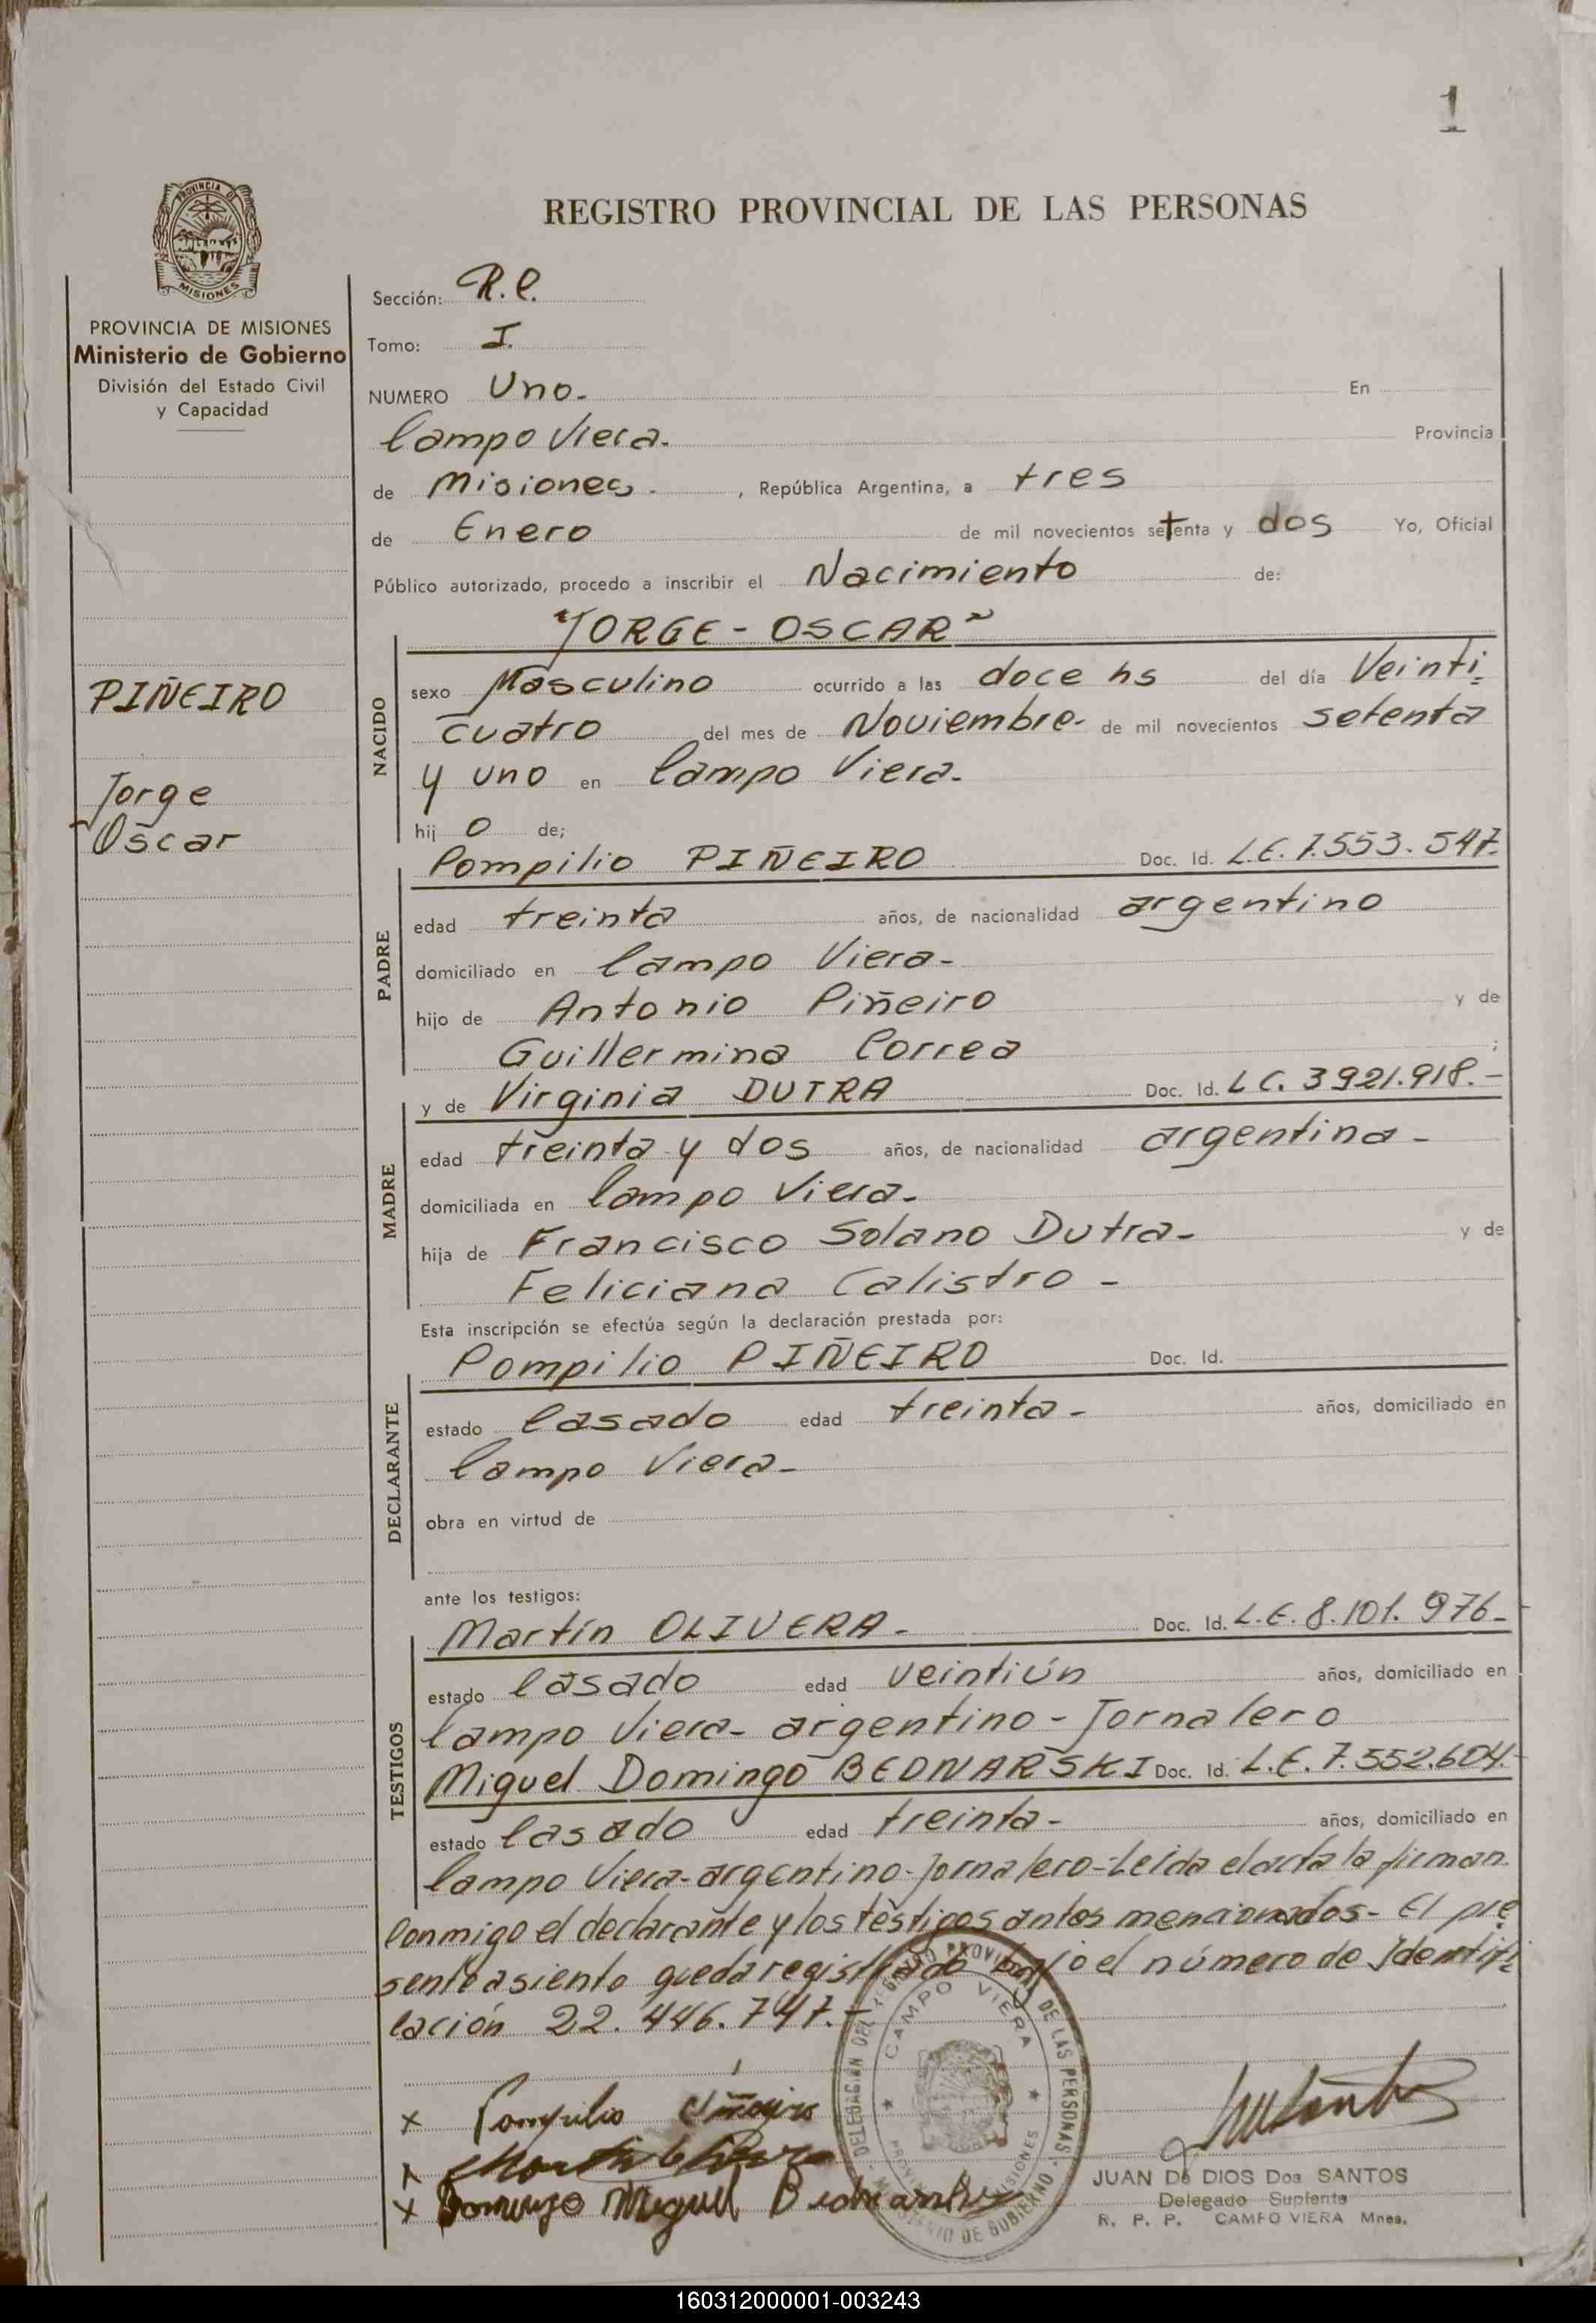 1
PROVINCIA DE
MISIONES
REGISTRO PROVINCIAL DE LAS PERSONAS
PROVINCIA DE MISIONES
Ministerio de Gobierno
División del Estado Civil
y Capacidad
PIÑEIRO
Jorge
Oscar
Sección: R.C.
Tomo: I.
NUMERO Uno. En
Campo Viera. Provincia
de Misiones. , República Argentina, a tres
de Enero de mil novecientos setenta y dos Yo, Oficial
Público autorizado, procedo a inscribir el Nacimiento de:
"JORGE - OSCAR"
NACIDO
sexo Masculino ocurrido a las doce hs del día Veinti
cuatro del mes de Noviembre de mil novecientos setenta
y uno en Campo Viera.
hij o de;
PADRE
Pompilio PIÑEIRO Doc. Id. L.E. 7.553.547.
edad treinta años, de nacionalidad argentino
domiciliado en Campo Viera-
hijo de Antonio Piñeiro y de
Guillermina Correa ;
MADRE
y de Virginia DUTRA Doc. Id. LC. 3921.918.-
edad treinta y dos años, de nacionalidad argentina -
domiciliada en Campo Viera-
hija de Francisco Solano Dutra- y de
Feliciana Calistro -
Esta inscripción se efectúa según la declaración prestada por:
DECLARANTE
Pompilio PIÑEIRO Doc. Id.
estado Casado edad treinta - años, domiciliado en
Campo Viera-
obra en virtud de
ante los testigos:
TESTIGOS
Martín OLIVERA - Doc. Id. L.E. 8.101.976-
estado Casado edad veintiún años, domiciliado en
Campo Viera- argentino - Jornalero
Miguel Domingo BEDNARSKI Doc. Id. L.E. 7.552.604.
estado Casado edad treinta - años, domiciliado en
Campo Viera-argentino-Jornalero-Leída el acta la firman
Conmigo el declarante y los testigos antes mencionados- El pre
sente asiento queda registrado bajo el número de Identifi
cación 22.446.747.-
DELEGACIÓN DEL REGISTRO PROVINCIAL DE LAS PERSONAS
CAMPO VIERA
MINISTERIO DE GOBIERNO
x Pompilio Piñeiro
x Domingo Miguel Bednarski
JUAN DE DIOS Dos SANTOS
Delegado Suplente
R. P. P. CAMPO VIERA Mnes.
160312000001-003243